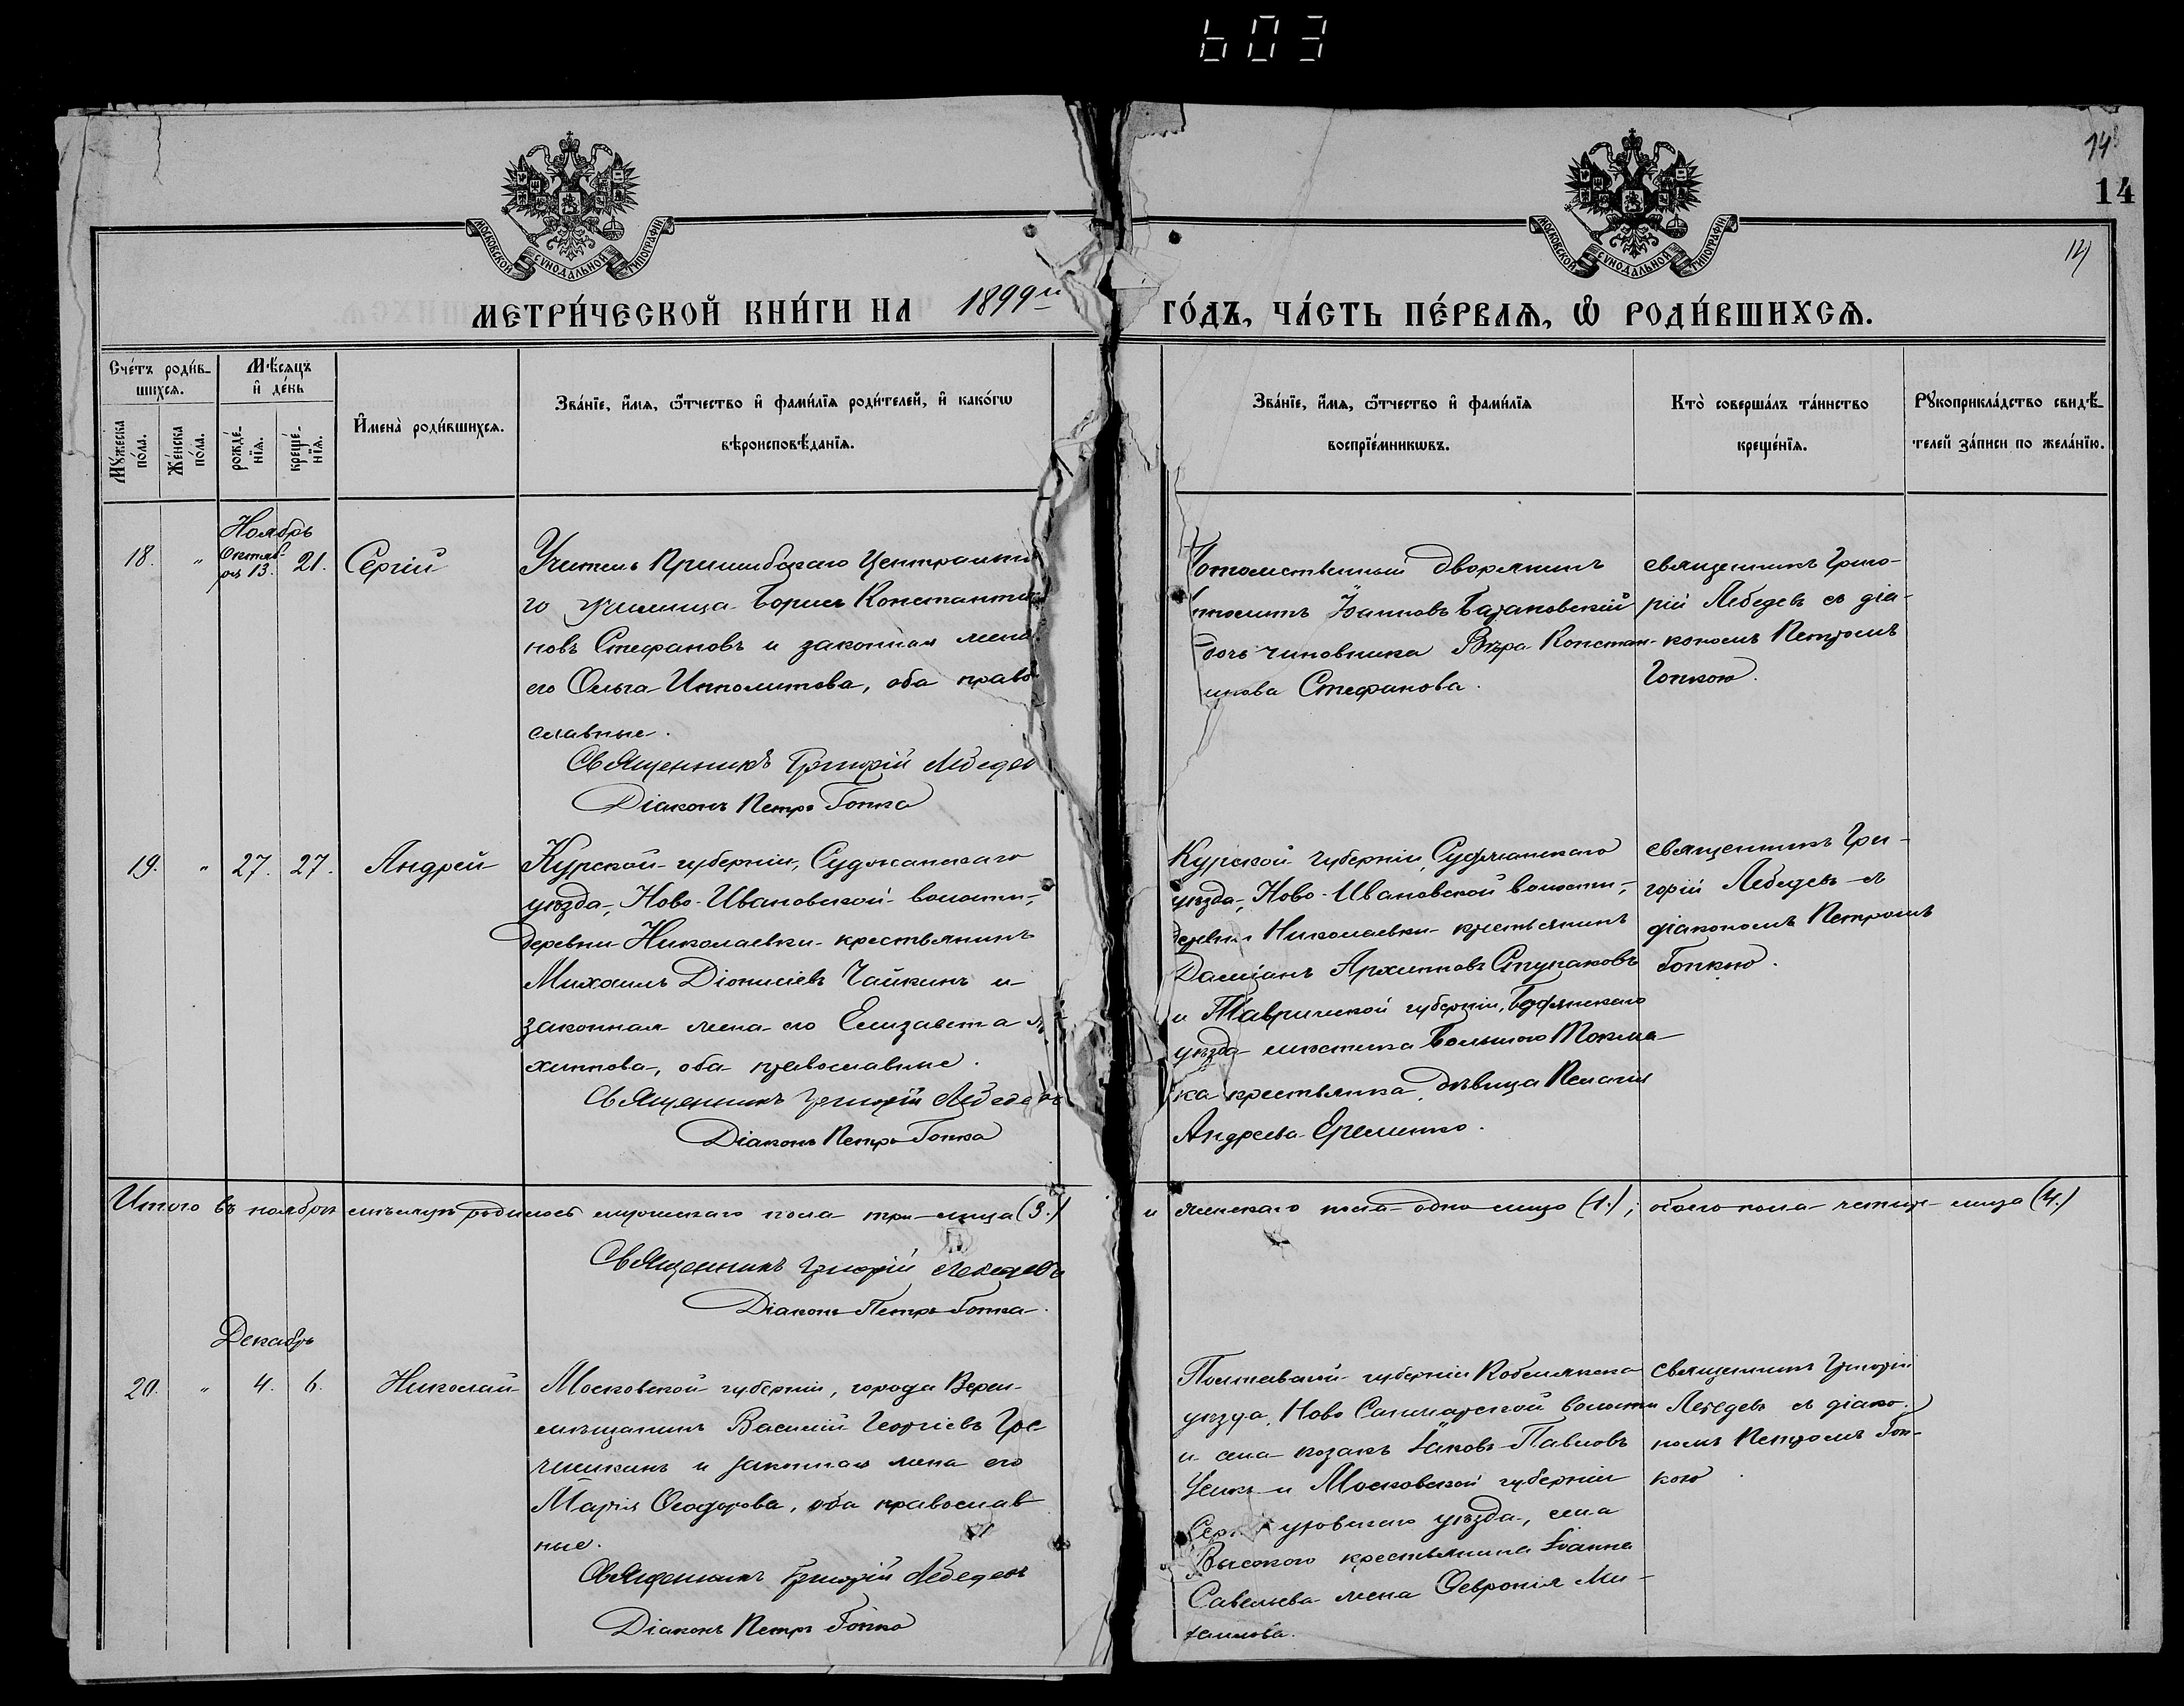 603
14
14
14
МОСКОВСКОЙ СѴНОДАЛЬНОЙ ТИПОГРАФІИ
МОСКОВСКОЙ СѴНОДАЛЬНОЙ ТИПОГРАФІИ
МЕТРИ́ЧЕСКОЙ КНИ́ГИ НА 1899й ГО́ДЪ, ЧА́СТЬ ПЕ́РВАѦ, Ѡ҆ РОДИ́ВШИХСѦ.
Сче́тъ роди́в-
шихсѧ.
Мѣ́сѧцъ
и҆ де́нь
Мꙋ́жеска по́ла.
Же́нска по́ла.
рожде́-нїѧ.
креще́-нїѧ.
И҆мена̀ роди́вшихсѧ.
Зва́нїе, и҆́мѧ, ѻ҆́тчество и҆ фами́лїѧ роди́телей, и҆ како́гѡ
вѣроисповѣ́данїѧ.
Зва́нїе, и҆́мѧ, ѻ҆́тчество и҆ фами́лїѧ
воспрїе́мникѡвъ.
Кто̀ соверша́лъ та́инство
креще́нїѧ.
Рꙋкоприкла́дство свидѣ́-
телей за́писи по жела́нїю.
Ноябрь
18. " Октяб-
ря 13. 21. Сергій
Учитель Пришибскаго Центрально
го училища Борисъ Константи
новъ Стефановъ и законная жена
его Ольга Ипполитова, оба право
славные.
Священникъ Григорій Лебедев
Діаконъ Петръ Гопка
Потомственный дворянинъ
Іоанновъ Базановскій
дочь чиновника Вѣра Констан-
инова Стефанова.
священникъ Григо-
рій Лебедевъ съ діа-
кономъ Петромъ
Гопкою.
19. " 27. 27. Андрей
Курской губерніи, Суджанскаго
уѣзда, Ново-Ивановской волости,
деревни Николаевки крестьянинъ
Михаилъ Діонисіевъ Чайкинъ и
законная жена его Елизавета А
хиппова, оба православные.
Священникъ Григорій Лебедевъ
Діаконъ Петръ Гопка
Курской губерніи Суджанскаго
уѣзда, Ново-Ивановской волости,
деревни Николаевки крестьянинъ
Даміанъ Архипповъ Ступаковъ
и Таврической губерніи, Бердянскаго
уѣзда мѣстечка Большого Токма-
ка крестьянка дѣвица Пелагія
Андреева Еременко.
священникъ Гри-
горій Лебедевъ съ
діакономъ Петромъ
Гопкою.
Итого въ ноябрѣ мѣсяцѣ родилось мужескаго пола три лица (3.) и женскаго пола одно лицо (1.); обоего пола четыре лица (4.)
Священникъ Григорій Лебедевъ
Діаконъ Петръ Гопка.
Декабрь
20. " 4. 6. Николай
Московской губерніи, города Вереи
мѣщанинъ Василій Георгіевъ Гре-
и законная жена его
Марія Ѳеодорова, оба православ
ные.
Священникъ Григорій Лебедевъ
Діаконъ Петръ Гопка
Полтавской губерніи Кобелякска
уѣзда, Ново Санжарской волости
и села козакъ Іаковъ Павловъ
и Московской губерніи
Серпуховскаго уѣзда, села
Высокого крестьянина Іоанна
Савельева жена Ѳевронія Ми-
хаилова.
священникъ Григорій
Лебедевъ съ діако-
номъ Петромъ Гоп-
кою